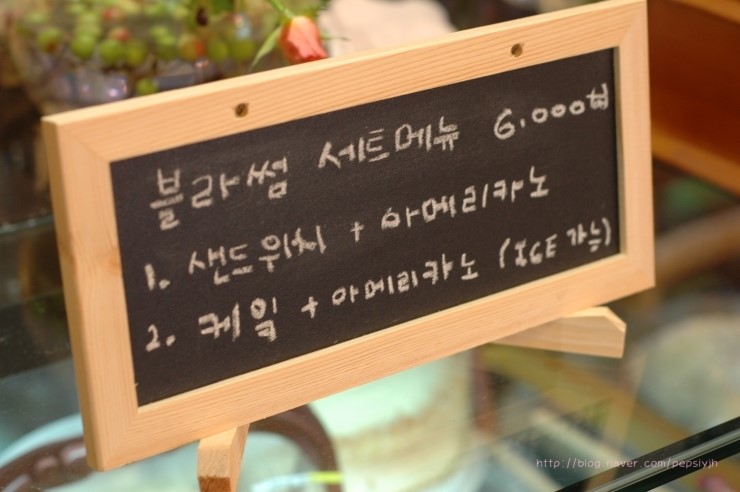 블라썸 세트메뉴 6.000원
1. 샌드위치 + 아메리카노
2. 케익 + 아메리카노 (ICE 가능)
http://blog.naver.com/pepsiyjh